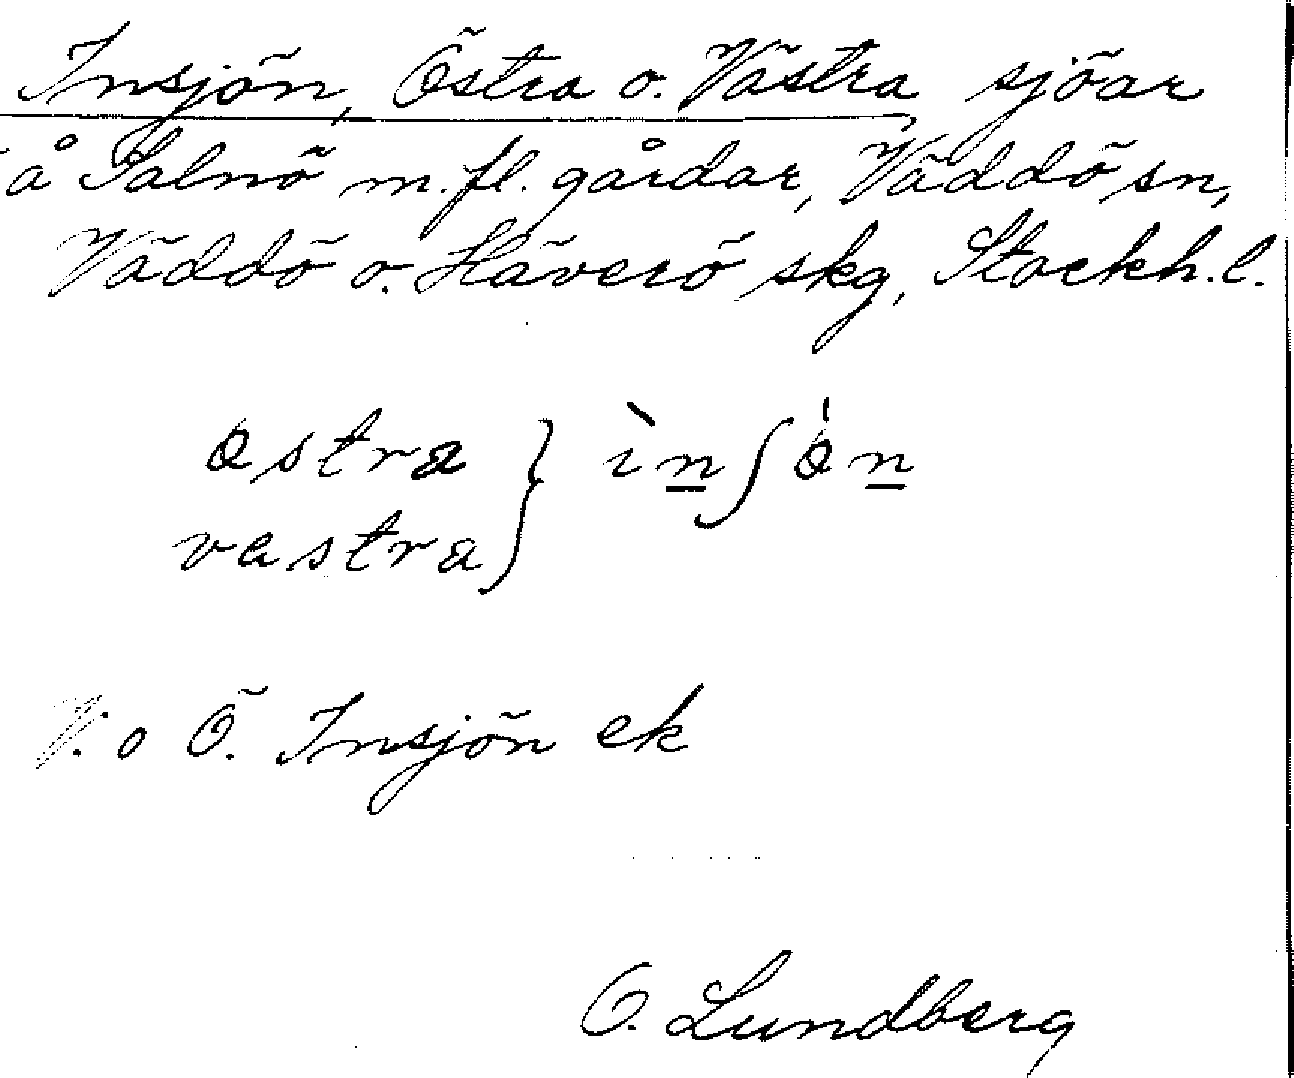 Insjön, Östra o. Västra, sjöar
å Salnö m.fl. gårdar, Väddö sn,
Väddö o. Häverö skg, Stockh.l.
östra } ìnʃö́n
vastra
V. o Ö. Insjön ek
O. Lundberg